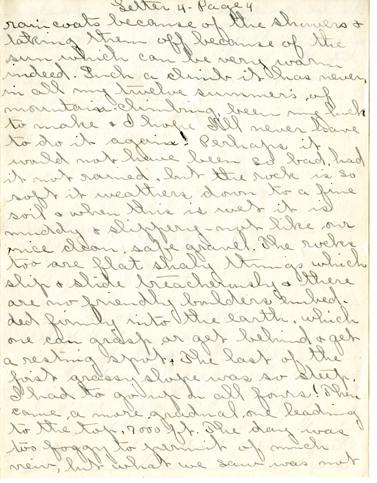 Letter 4 - Page 4
raincoats because of the showers &
taking them off because of the
sun which can be very warm
indeed. Such a climb it has never
in all my twelve summers of
mountain climbing been my luck
to make & I hope I'll never have
to do it again! Perhaps it
would not have been so bad had
it not rained but the rock is so
soft it weathers down to a fine
soil & when this is wet it is
muddy & slippery - not like our
nice clean, safe gravel. The rocks
too are flat shaly things which
slip & slide treacherously & there
are no friendly boulders imbed-
ded firmly into the earth, which
one can grasp or get behind & get
a resting spot. The last of the
first grassy slope was so steep.
I had to go up on all fours! Then
came a more gradual one leading
to the top, 7000 ft. The day was
too foggy to permit of much
view, but what we saw was not